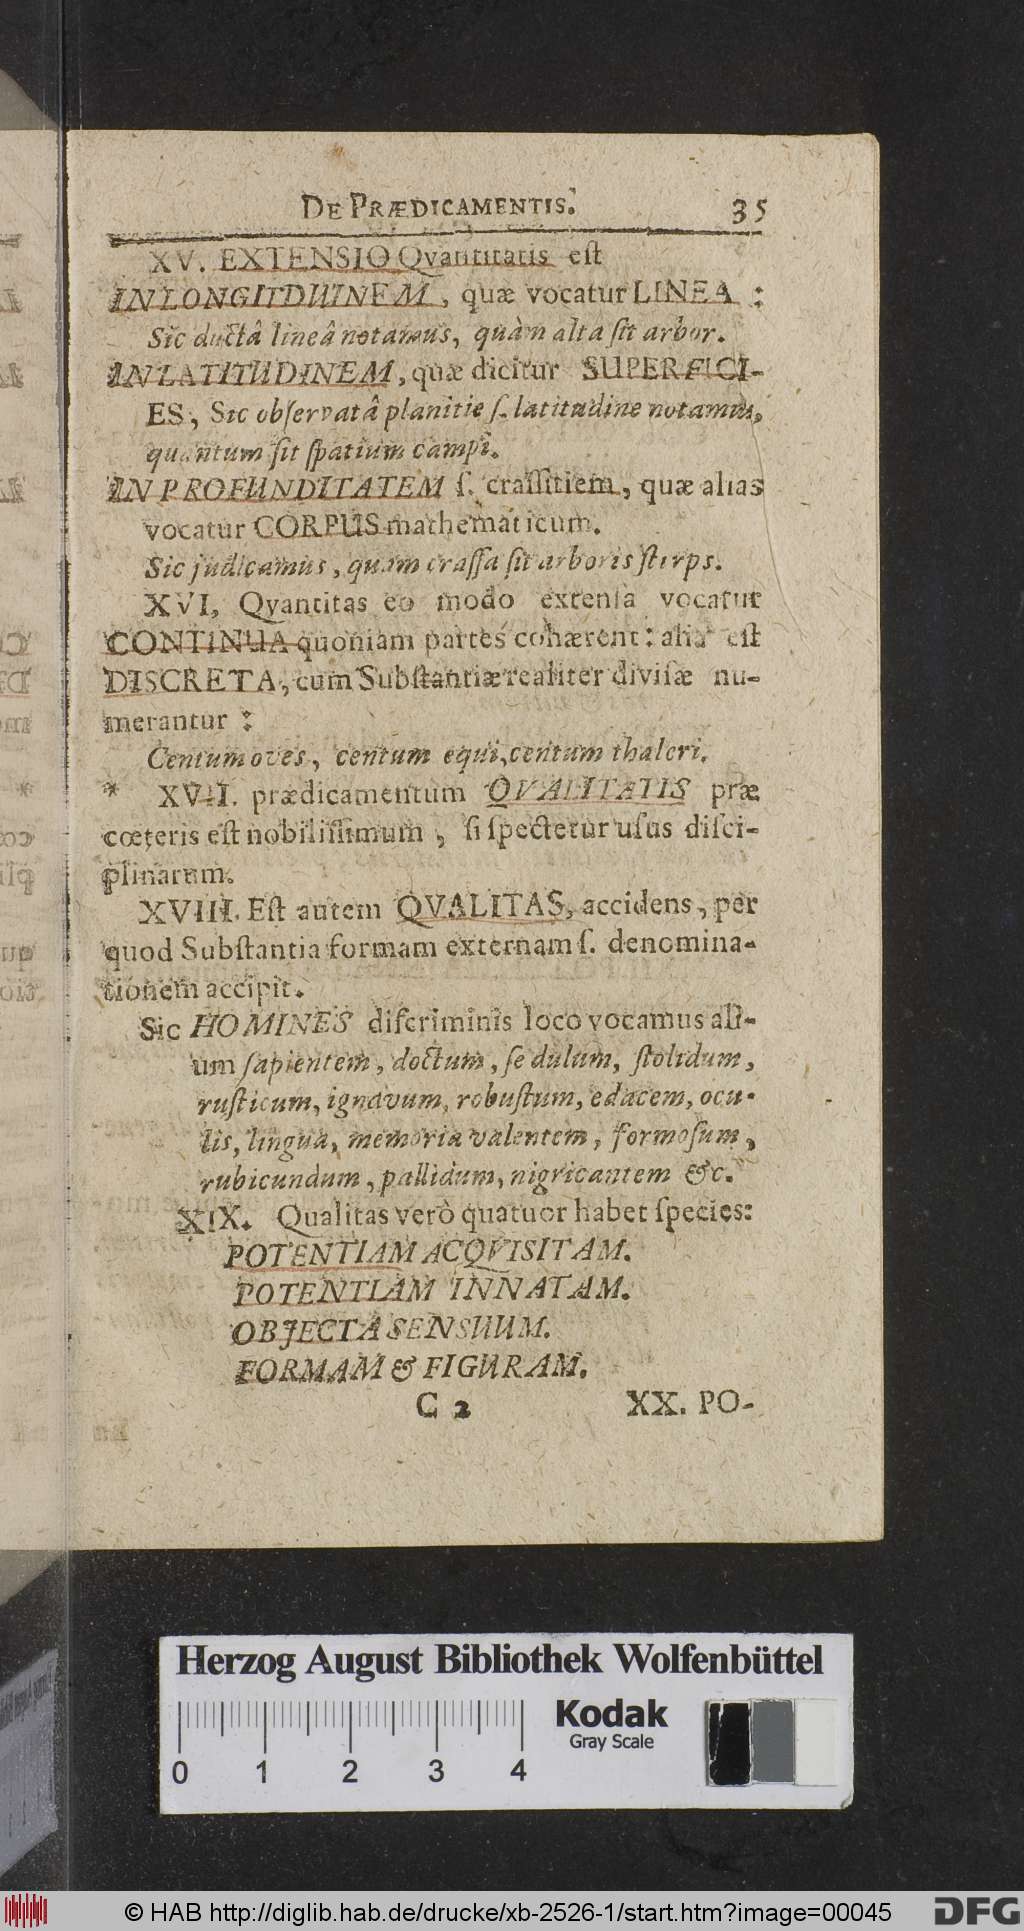 DE PRÆDICAMENTIS. 35
XV. EXTENSIO Qvantitatis eſt
IN LONGITDUINEM, quæ vocatur LINEA :
Sic ductâ lineâ notamus, quàm alta ſit arbor.
IN LATITUDINEM, quæ dicitur SUPERFICI-
ES, Sic obſervatâ planitie ſ. latitudine notamus,
quantum ſit ſpatium campi.
IN PROFUNDITATEM ſ. craſſitiem, quæ alias
vocatur CORPUS mathematicum.
Sic judicamus, quam craſſa ſit arboris ſtirps.
XVI, Qvantitas eo modo extenſa vocatur
CONTINUA quoniam partes cohærent: alia eſt
DISCRETA, cum Subſtantiæ realiter diviſæ nu-
merantur :
Centum oves, centum equi, centum thaleri.
* XVII. prædicamentum QVALITATIS præ
cœteris eſt nobiliſſimum, ſi ſpectetur uſus diſci-
plinarum.
XVIII. Eſt autem QVALITAS, accidens, per
quod Subſtantia formam externam ſ. denomina-
tionem accipit.
Sic HOMINES diſcriminis loco vocamus ali-
um ſapientem, doctum, ſedulum, ſtolidum,
ruſticum, ignavum, robuſtum, edacem, ocu-
lis, lingua, memoria valentem, formoſum,
rubicundum, pallidum, nigricantem &c.
XIX. Qualitas verò quatuor habet ſpecies:
POTENTIAM ACQVISITAM.
POTENTIAM INNATAM.
OBJECTA SENSUUM.
FORMAM & FIGURAM.
C 2 XX. PO-
Herzog August Bibliothek Wolfenbüttel
Kodak
Gray Scale
0 1 2 3 4
© HAB http://diglib.hab.de/drucke/xb-2526-1/start.htm?image=00045
DFG